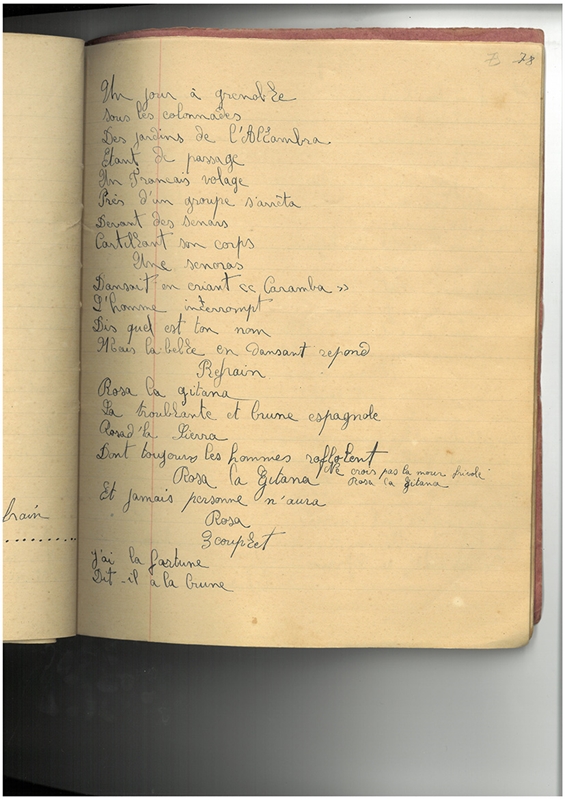 28
Un jour à grenoble
sous les colonnades
Des jardins de l'Alambra
Etant de passage
Un Francais volage
Près d'un groupe s'arrêta
Devant des senors
son corps
Une senoras
Dansait en criant « Caramba »
L'homme interrompt
Dis quel est ton nom
Mais la belle en dansant repond
Refrain
Rosa la gitana
La troublante et brune espagnole
Rosa d'la Sierra
Dont toujours les hommes raffolent
Ne crois pas la mour fricole
Rosa la Gitana
Rosa la Gitana
Et jamais personne n'aura
Rosa
3 couplet
j'ai la fortune
Dit-il à la brune
frain
..........